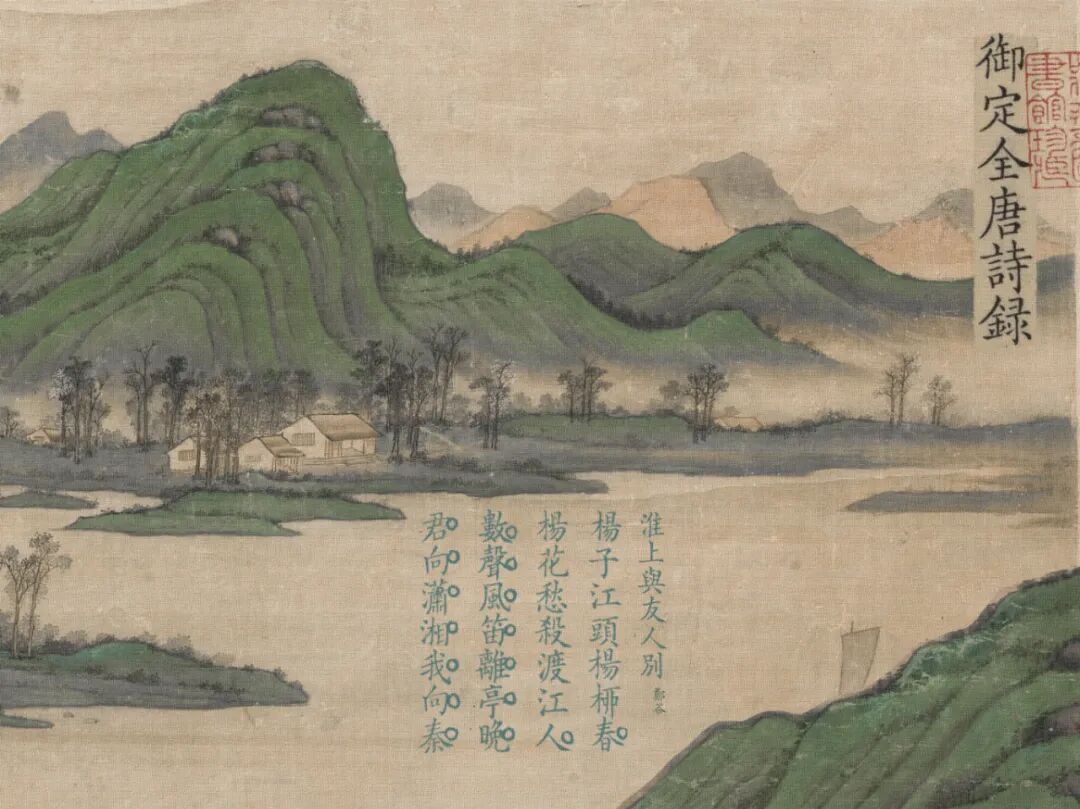 御定全唐詩録
淮上與友人別
鄭谷
楊子江頭楊桺春
楊花愁殺渡江人
數聲風笛離亭晚
君向瀟湘我向秦